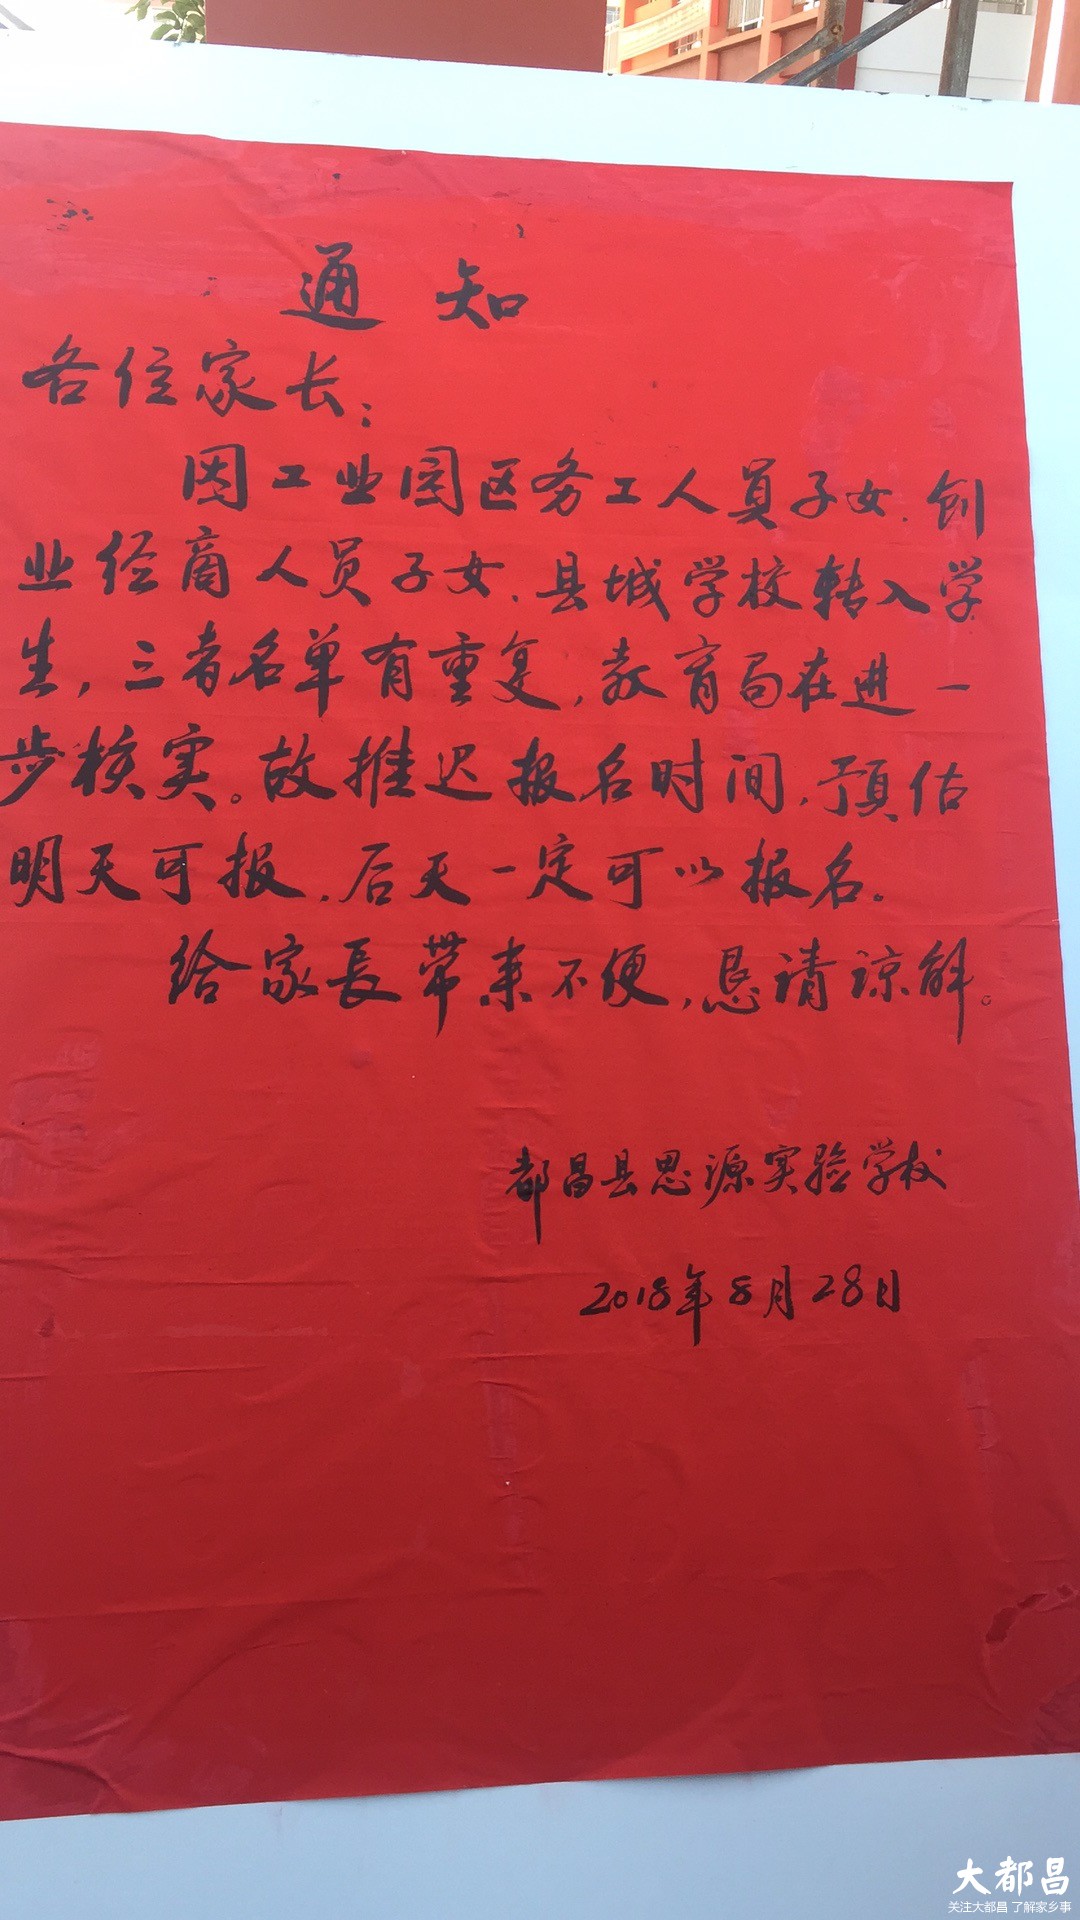 通知
各位家长:
因工业园区务工人员子女、创
业经商人员子女、县城学校转入学
生,三者名单有重复,教育局在进一
步核实。故推迟报名时间,预估
明天可报,后天一定可以报名。
给家長带来不便,恳请谅解。
都昌县思源实验学校
2018年8月28日
大都昌
关注大都昌 了解家乡事